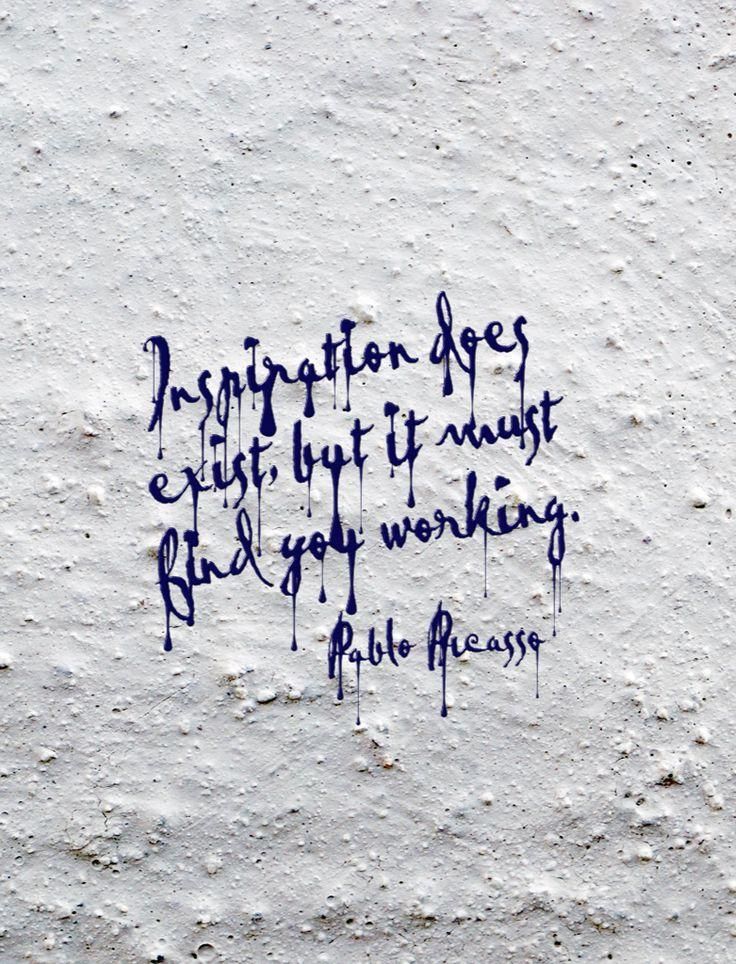 Inspiration does
exist, but it must
find you working.
Pablo Picasso